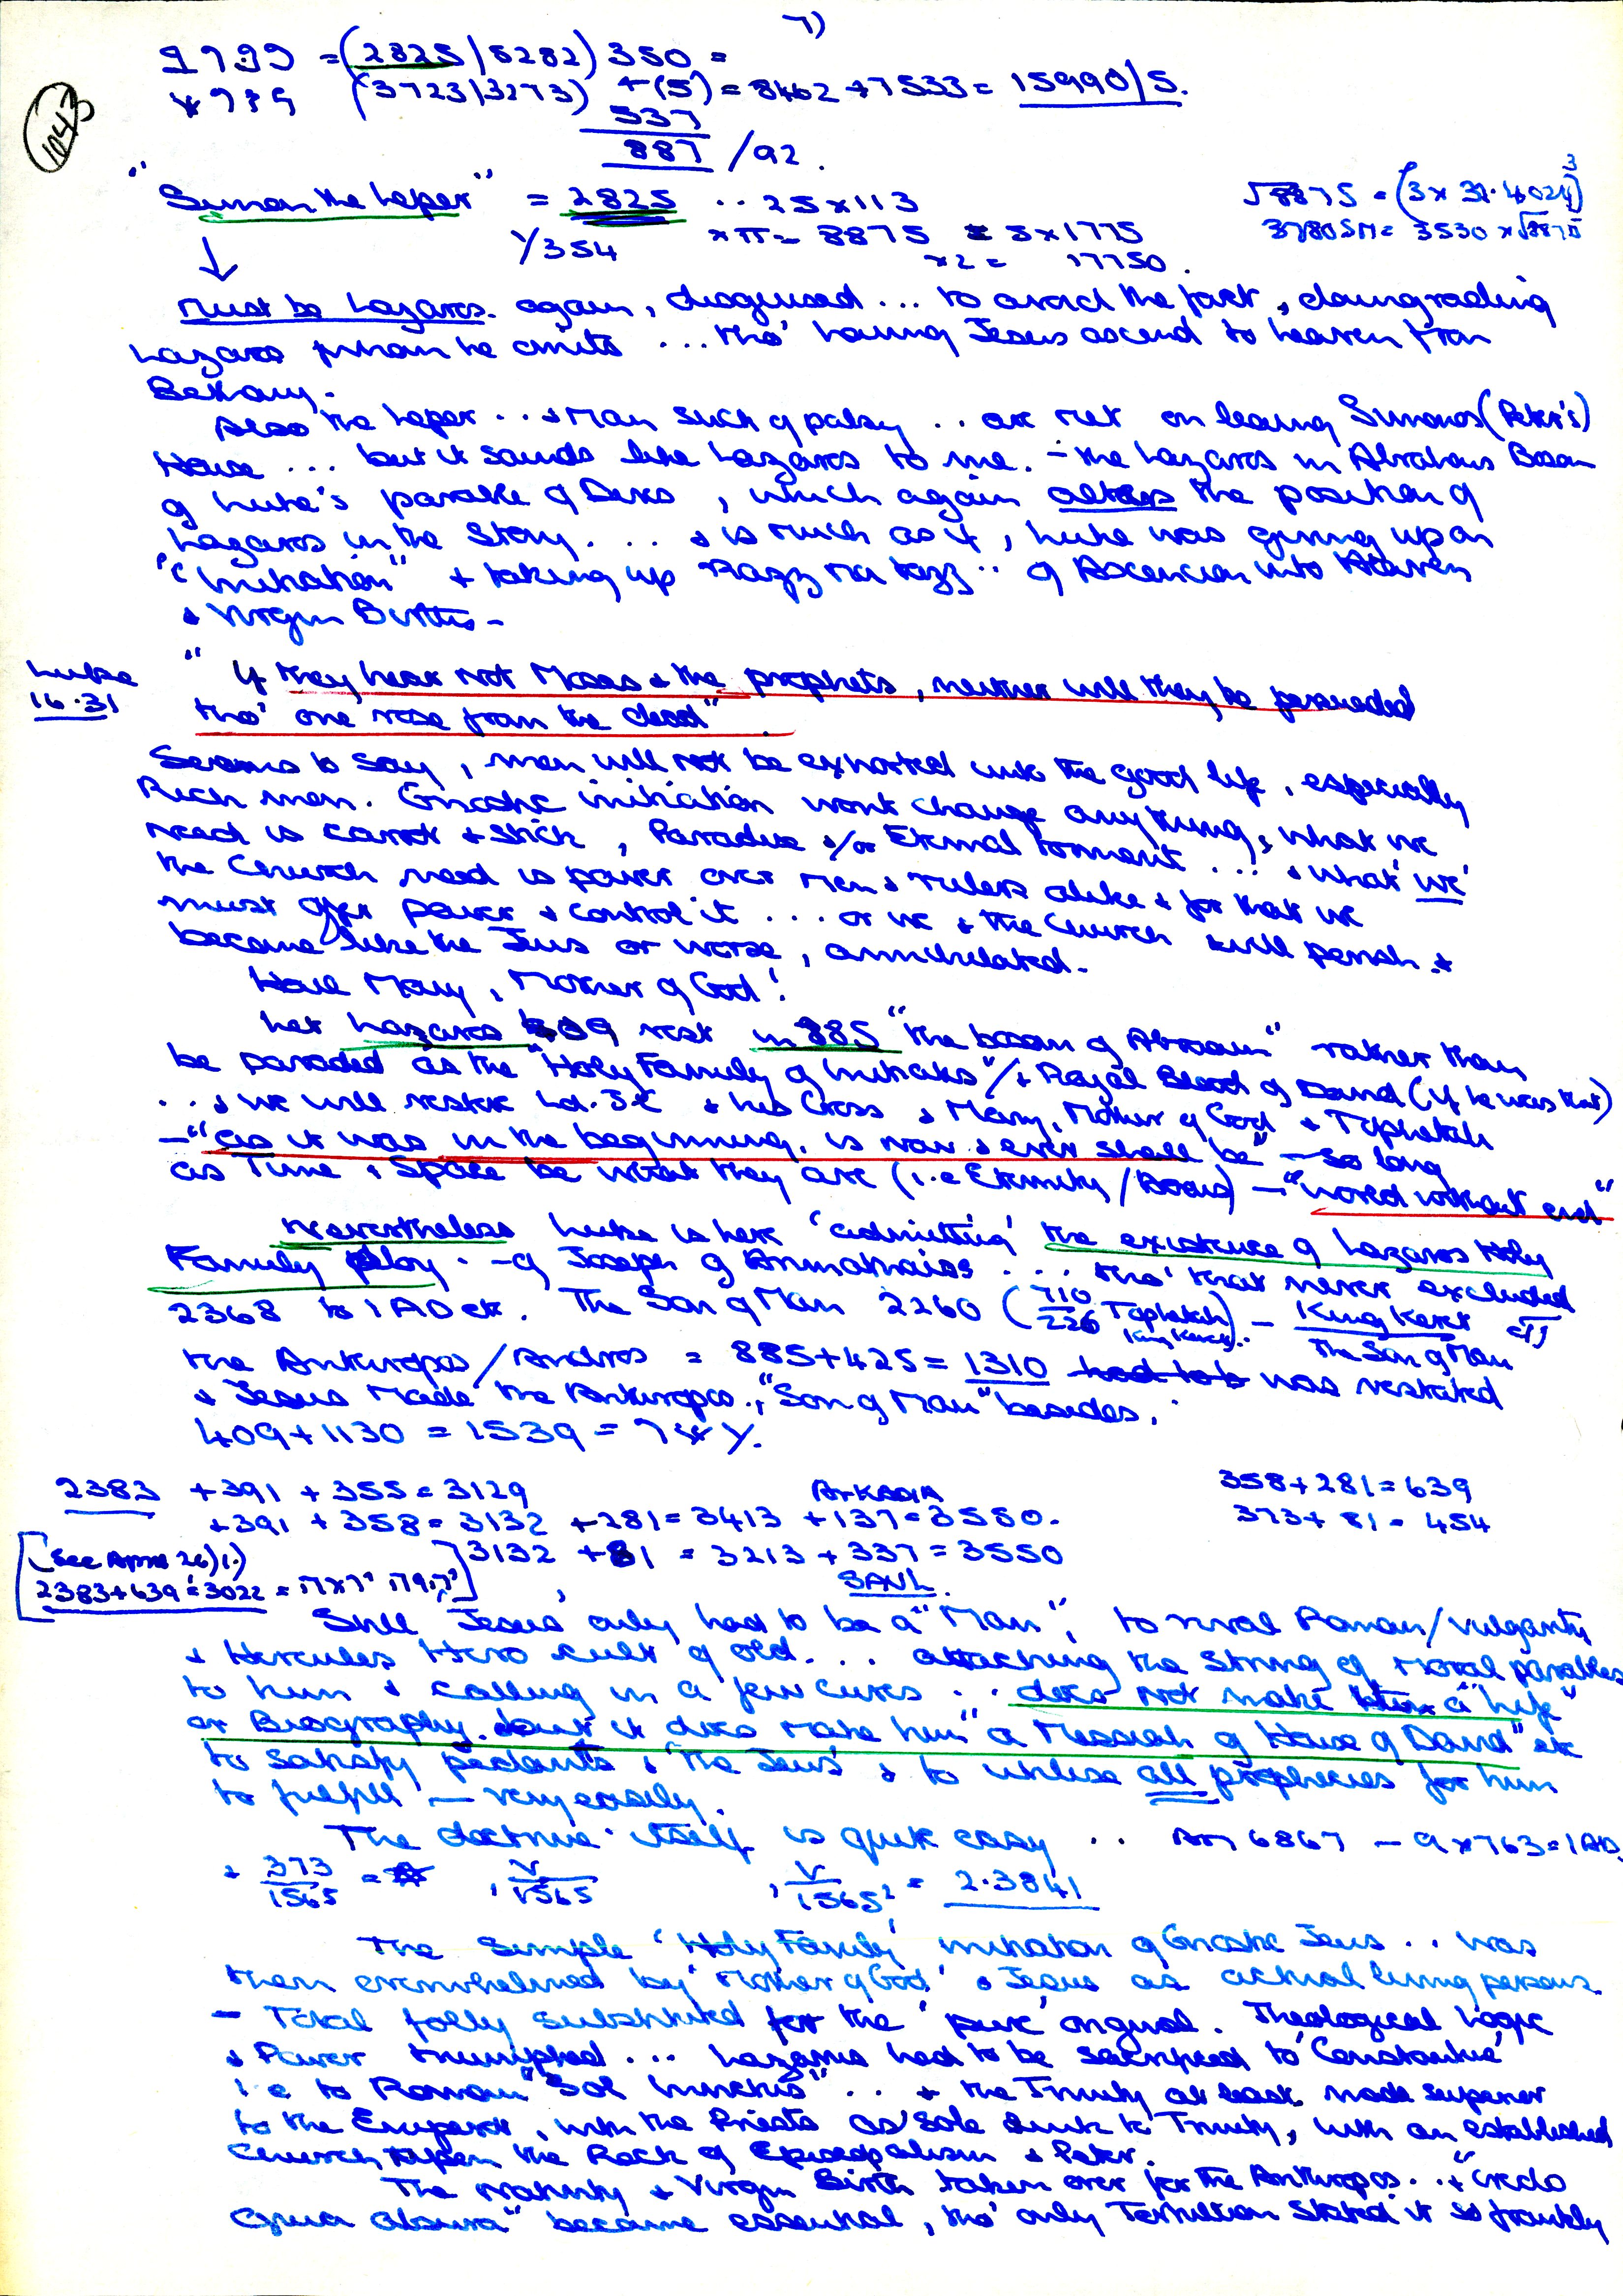 7)
= (2825/5282) 350 =
(3723/3273) + (5) = 8462 + 7533 = 15990/5.
537
887 /92.
1043
"Simon the Leper" = 2825 .. 25 x 113
√8875 = (3 x 31.4024)³
Y/354 x π = 8875 = 5 x 1775
37805M = 3530 x
x 2 = 17750.
↓
must be Lazaros. again, disguised ... to avoid the fact, downgrading
Lazaros whom he omits ... tho' having Jesus ascend to heaven from
Bethany.
Also the Leper ... + Man sick of palsy .. are met on leaving Simonos (Peter's)
House ... but it sounds like Lazaros to me. - the Lazaros in Abrahams Bosom
of Luke's parable of Dives, which again alters the position of
Lazaros in the Story. ... + is much as if, Luke was giving up on
"Initiation" + taking up Razz ma tazz .. of Ascension into Heaven
+ Virgin Births -
Luke
16.31
"If they hear not Moses + the prophets, neither will they be persuaded
tho' one rose from the dead"
Seems to say, men will not be exhorted into the good life, especially
Rich men. Gnostic initiation wont change anything, what we
need is carrot + stick, Paradise +/or Eternal torment ...! + what 'we'
the Church need is power over men + rulers alike + for that we
must offer power + control it ... or we + the Church will perish +
become like the Jews or worse, annihilated.
Hail Mary, Mother of God!
Let Lazaros 409 rest in 885 "the bosom of Abraam" rather than
be paraded as the "Holy Family of Initiates"/+ Royal Blood of David (if he was that)
... + we will restore Ld. J.C + his Cross + Mary, Mother of God + Tiphetah
- "as it was in the beginning, is now + ever shall be" - so long
as Time + Space be what they are (i.e Eternity/) - "world without end"
Nevertheless Luke is here 'admitting' the existence of Lazaros Holy
Family ploy. - of Joseph of Arimathaias ... tho' that never excluded
2368 to 1 AD etc. The Son of Man 2260 (710/226 Tiphetah King Kerex). - King Kerex / The Son of Man = π
the Anthropos/Andros = 885 + 425 = 1310 had to b was restated
+ Jesus made the Anthropos, "Son of Man" besides.
409 + 1130 = 1539 =
2383 + 391 + 355 = 3129
ARKADIA
358 + 281 = 639
+ 391 + 358 = 3132 + 281 = 3413 + 137 = 3550.
373 + 81 = 454
[(See April 26)1.)
3132 + 81 = 3213 + 337 = 3550
2383 + 639 = 3022 =
SAUL.
Still 'Jesus' only had to be a "Man", to rival Roman/vulgarity
+ Hercules Hero cult of old ... attaching the String of Moral parables
to him + calling in a few cures .. does not make him a "life"
or Biography. but it does make him "a Messiah of House of David" etc
to satisfy pedants + 'the Jews' + to utilise all prophecies for him
to fulfill - very easily.
The doctrine itself is quite easy .. Am 6867 - 9 x 763 = 1 AD.
+ 373/1565 = , V/√1565 , V/1565² = 2.3841
The simple 'Holy Family' initiation of Gnostic Jews .. was
then overwhelmed by 'Mother of God' + Jesus as actual living persons
- Total folly substituted for the 'pure' original. Theological Logic
+ Power triumphed ... Lazaros had to be sacrificed to 'Constantine'
i.e to Roman "Sol Invictus" .. + the Trinity at least made superior
to the Emperor, with the Priests as sole link to Trinity, with an established
Church upon the Rock of Episcopalism + Peter.
The nativity + Virgin Birth taken over for the Anthropos .. + "Credo
Quia Absurd" became essential, tho' only Tertullian stated it so frankly